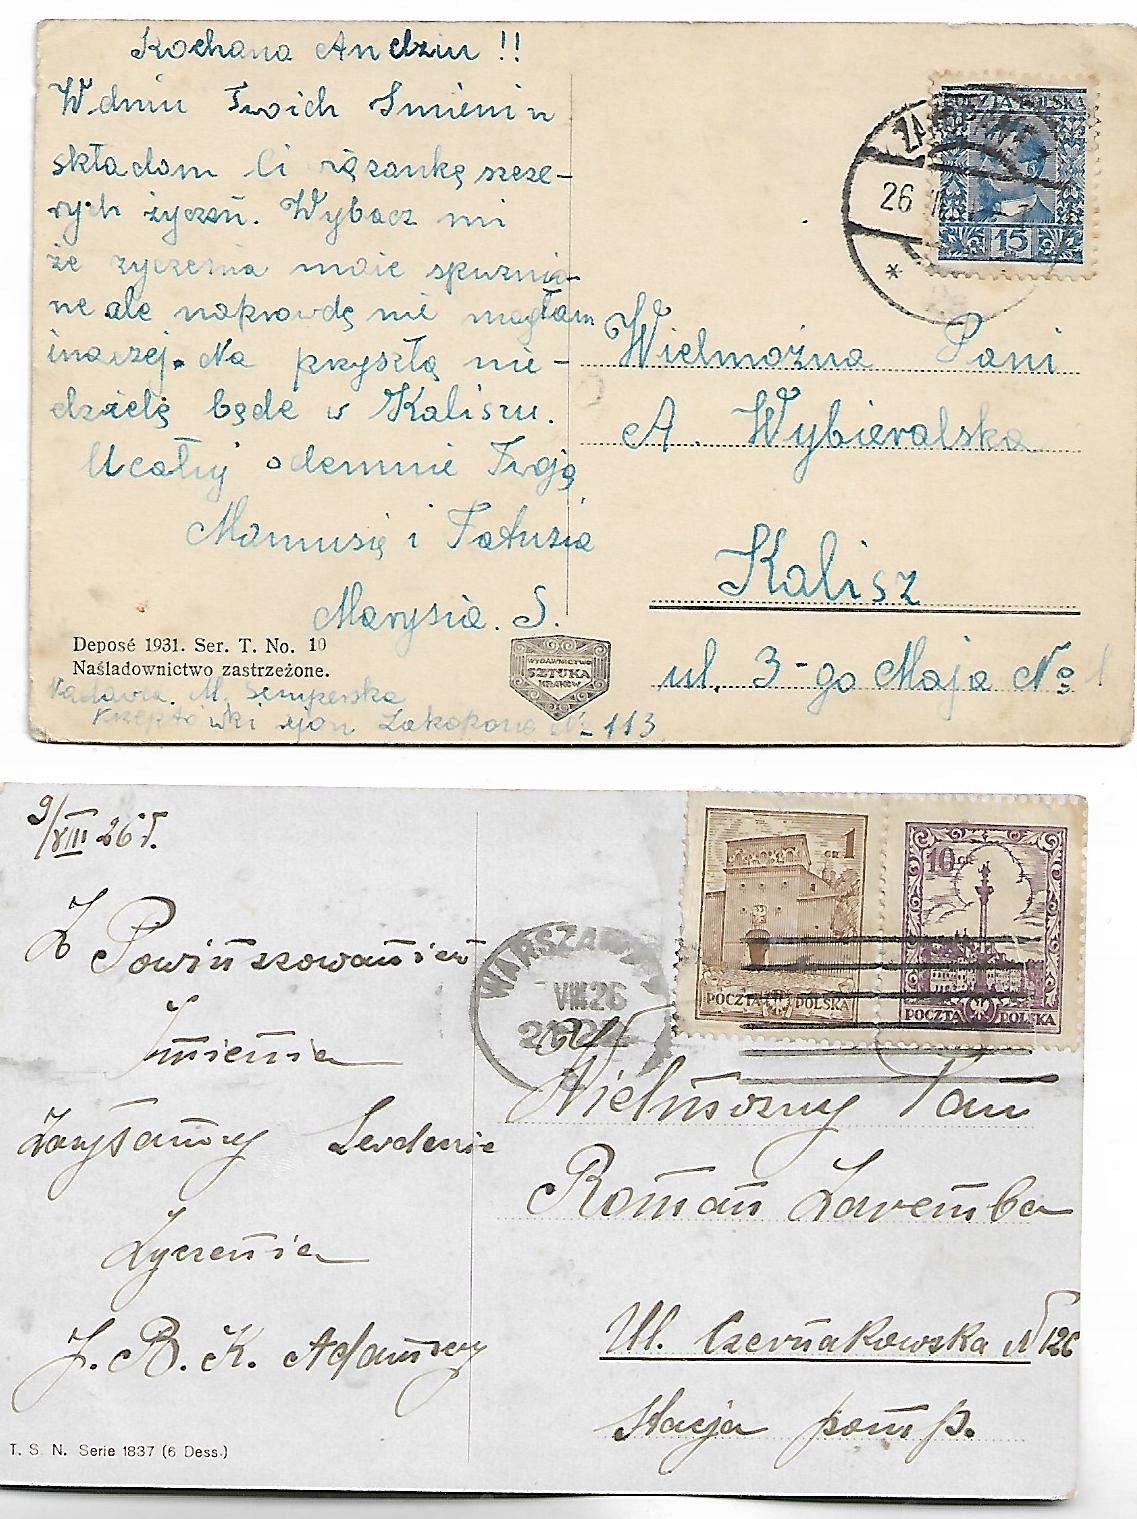 Kochana Andziu !!
W dniu Twoich Imienin
składam Ci wiązankę szcze-
rych życzeń. Wybacz mi
że życzenia moie spuźnio-
ne ale naprawdę nie mogłam
inaczej. Na przyszłą nie-
dzielę będe w Kaliszu.
Ucałuj odemnie Twoją
Mamusię i Tatusia
Marysia. S.
Deposé 1931. Ser. T. No. 10
Naśladownictwo zastrzeżone.
Nadawca. M. Semperska
Zakopane № 113
WYDAWNICTWO
SZTUKA
KRAKÓW
POCZTA POLSKA
15
ZAKOPANE
26
Wielmożna Pani
A. Wybieralska
Kalisz
ul. 3-go Maja № 1
9/VIII 26 r.
Z Powinszowaniem
Imienia
Zasyłamy Serdenie
Zyczenia
J. B. K. Adamscy
T. S. N. Serie 1837 (6 Dess.)
GR 1
POCZTA POLSKA
10 GR
POCZTA POLSKA
WARSZAWA
VIII 26
Wielmozny Pan
Roman Zaremba
Ul. Czerniakowska N 126
Stacja pomp.